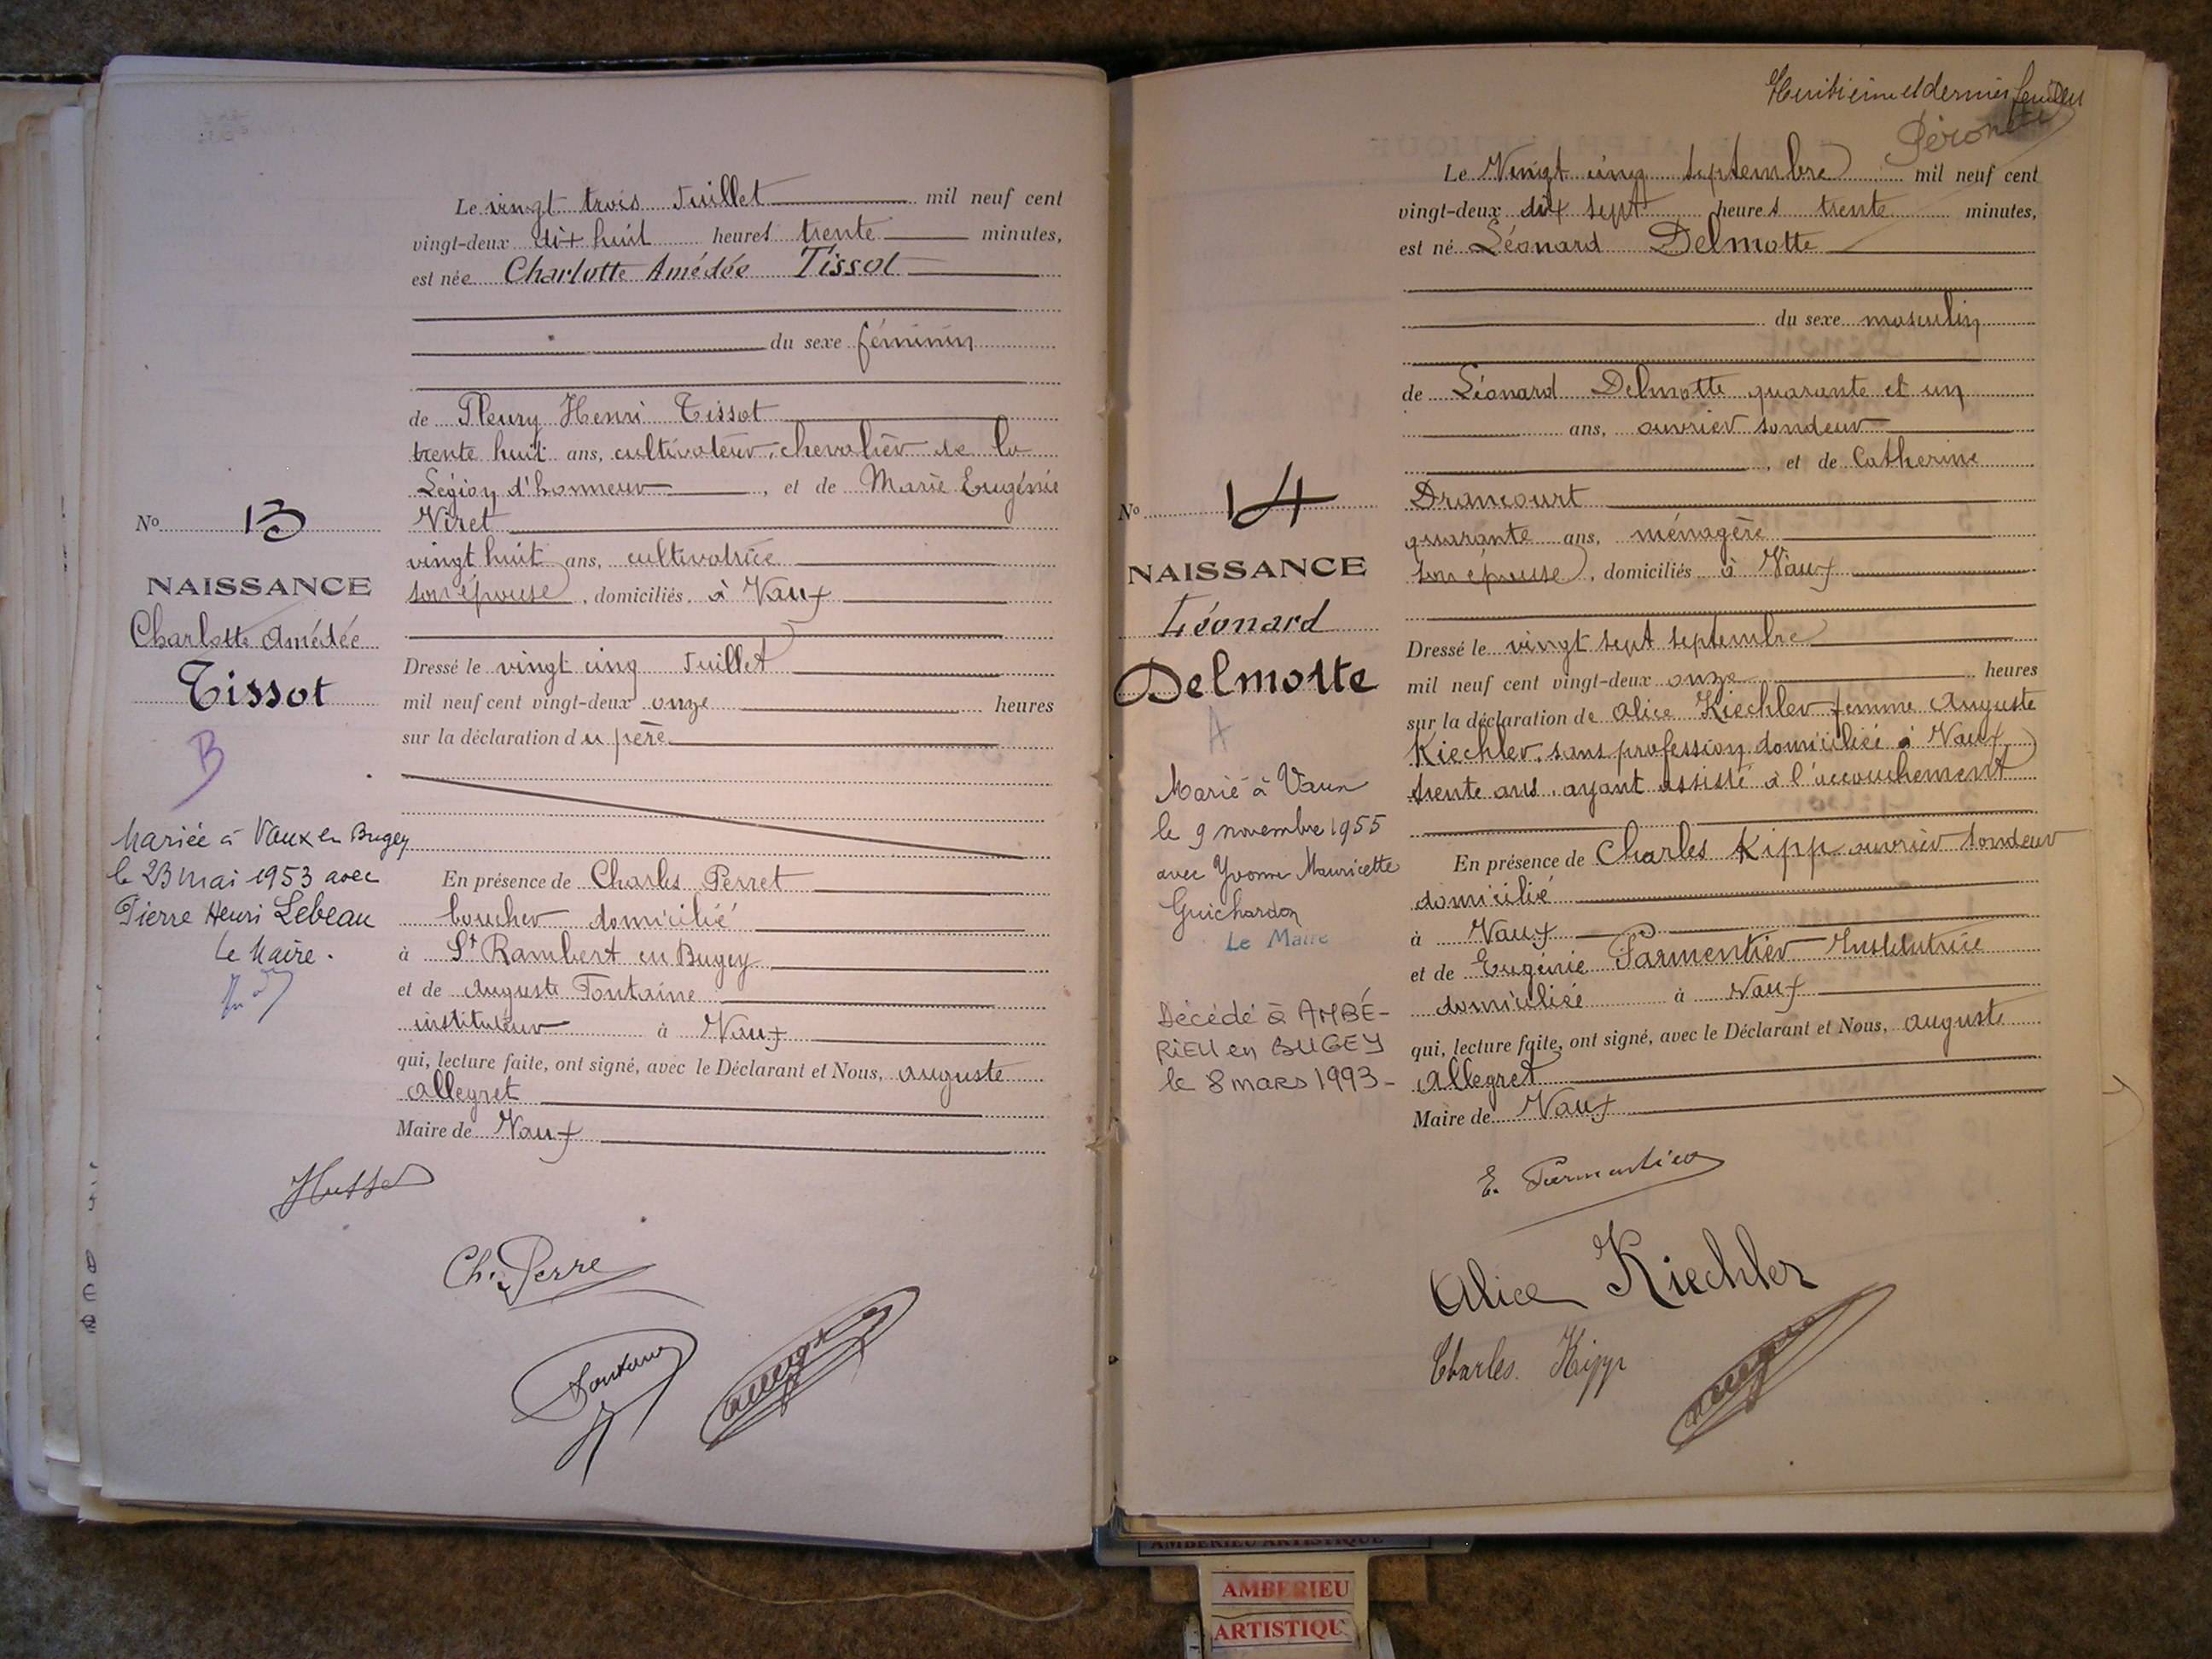 Le vingt trois Juillet mil neuf cent
vingt-deux dix huit heures trente minutes,
est née Charlotte Amédée Tissot
du sexe féminin
de Fleury Henri Tissot
trente huit ans, cultivateur, chevalier de la
Légion d'honneur, et de Marie Eugénie
Viret
vingt huit ans, cultivatrice
son épouse, domiciliés, à Vaux
Dressé le vingt cinq Juillet
mil neuf cent vingt-deux onze heures
sur la déclaration du père
En présence de Charles Perret
boucher domicilié
à St Rambert en Bugey
et de Auguste Fontaine
instituteur à Vaux
qui, lecture faite, ont signé, avec le Déclarant et Nous, Auguste
Allegret
Maire de Vaux
No 13
NAISSANCE
Charlotte Amédée
Tissot
B
Mariée à Vaux en Bugey
le 23 mai 1953 avec
Pierre Henri Lebeau
Le Maire.
Ch. Perre
Huitième et dernier feuillet
Le Vingt cinq septembre mil neuf cent
vingt-deux dix sept heures trente minutes,
est né Léonard Delmotte
du sexe masculin
de Léonard Delmotte quarante et un
ans, ouvrier sondeur
, et de Catherine
Drancourt
quarante ans, ménagère
son épouse, domiciliés à Vaux
Dressé le vingt sept septembre
mil neuf cent vingt-deux onze heures
sur la déclaration de Alice Kiechler femme Auguste
Kiechler, sans profession domiciliée à Vaux
trente ans, ayant assisté à l'accouchement
En présence de Charles Kipp ouvrier sondeur
domicilié
à Vaux
et de Eugénie Parmentier Institutrice
domiciliée à Vaux
qui, lecture faite, ont signé, avec le Déclarant et Nous, Auguste
Allegret
Maire de Vaux
No 14
NAISSANCE
Léonard
Delmotte
A
Marié à Vaux
le 9 novembre 1955
avec Yvonne Mauricette
Guichardon
Le Maire
Décédé à AMBÉ-
RIEU en BUGEY
le 8 mars 1993-
E. Parmentier
Alice Kiechler
Charles. Kipp
AMBERIEU ARTISTIQUE
AMBERIEU
ARTISTIQU